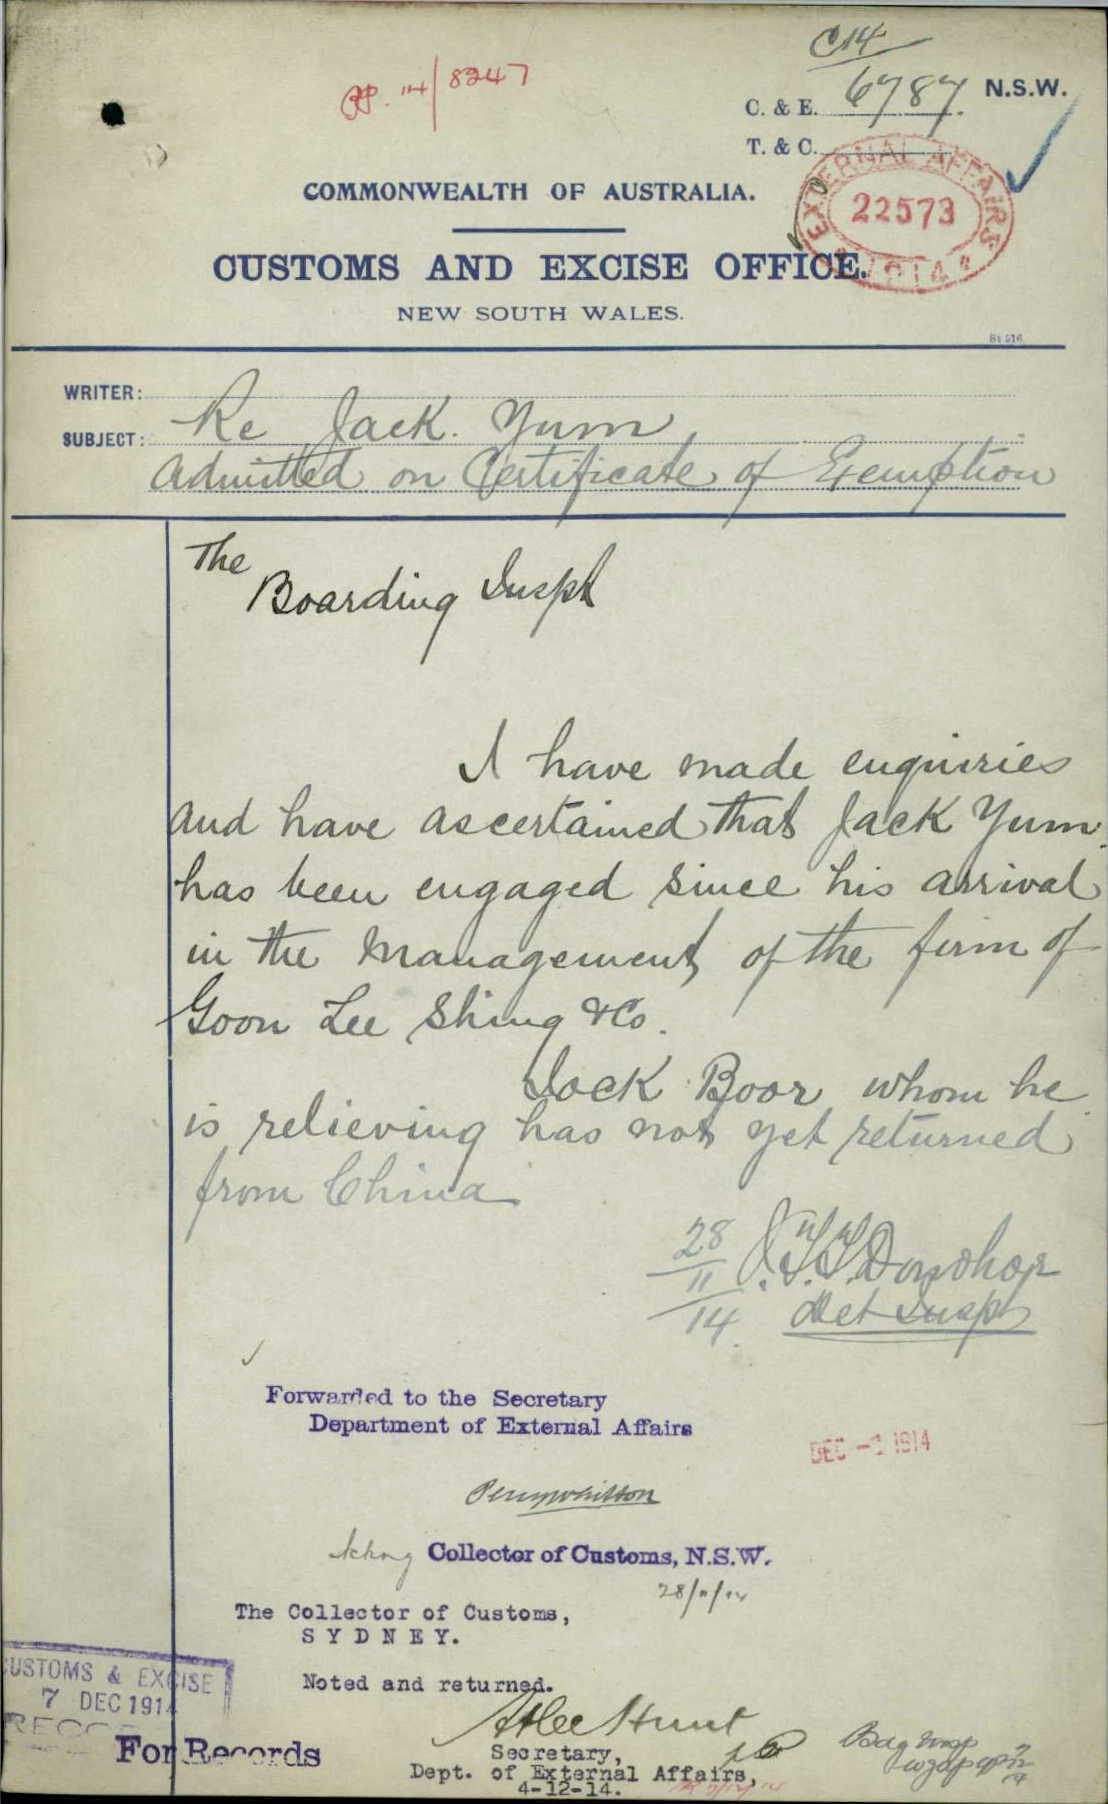 C14
14/8247
C. & E. 6787 N.S.W.
T. & C.
EXTERNAL AFFAIRS
22573
"1914"
COMMONWEALTH OF AUSTRALIA.
CUSTOMS AND EXCISE OFFICE.
NEW SOUTH WALES.
WRITER:
SUBJECT: Re Jack. Yum
Admitted on Certificate of Exemption
The
Boarding Inspr
I have made enquiries
and have ascertained that Jack Yum
has been engaged since his arrival
in the Management of the firm of
Goon Lee Shing & Co.
Jock Boor whom he
is relieving has not yet returned
from China
28/11/14 Donohoe
Det Insp
Forwarded to the Secretary
Department of External Affairs
DEC - 1914
Acting Collector of Customs, N.S.W.
28/11/14
The Collector of Customs,
SYDNEY.
CUSTOMS & EXCISE
7 DEC 1914
Noted and returned.
Atlee Hunt
For Records
Secretary,
Dept. of External Affairs,
4-12-14.